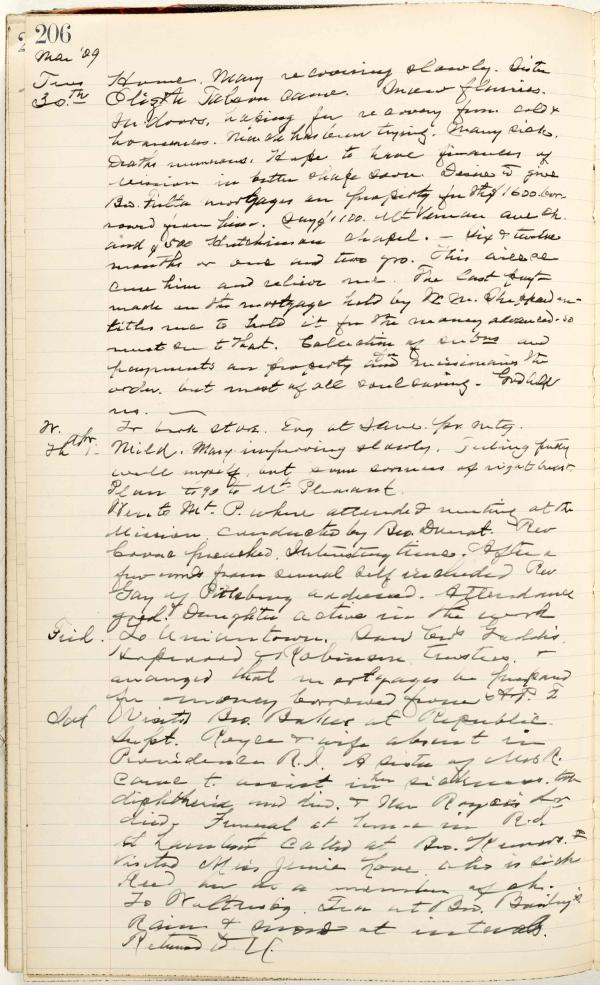 206
Mar '09
Tues Home. Mary recovering slowly. Sister
30.th Eliz'th Tatson came. Snow flurries.
In doors, hoping for recovery from cold &
hoarseness. Month has been trying. Many sick.
Deaths numerous. Hope to have finances of
Mission in better shape soon. Desire to give
Bro. Fulta mortgages on property for the $1600 bor-
rowed from him. Say $1100. Mt Vernon ave ch.
and $500 Hutchinson chapel. - Six & twelve
months or one and two yrs. This will se
cure him and relieve me. The last paymt
made on the mortgage held by
titles me to hold it for the money advanced - so
must see to that. Collection of subs and
payments on property and missionaries the
order. but most of all soul saving - God help
us.
W. To book store. Eng at Save. pr. mtg.
Th Apr. 1- Mild. Mary improving slowly. Feeling pretty
well myself, but some soreness of right breast.
Plan to go to Mt Pleasant.
Went to Mt. P. where attended meeting at the
Mission, conducted by Bro. Rev
preached. Interesting time. After a
few words from several self included Rev
Gay of Pittsburg addressed. Attendance
good. Daughter active in the work
Frid. To Uniontown. Saw Gaddis
Hopwood & Robinson trustees. &
arranged that mortgages be prepared
for money borrowed from
Sat Visited Bro. Baker at Republic.
Supt. Royce & wife absent in
Providence R.I. A sister of Mrs R.
came to assist in her sickness. took
diphtheria and died. & then Royce's
died. Funeral at home in R.I.
At called at Bro. &
visited Miss Jennie Love who is sick
Rec'd as a member of ch.
To Waltersburg. Tea at Bro.
Rain & snow at intervals.
Returned to U.